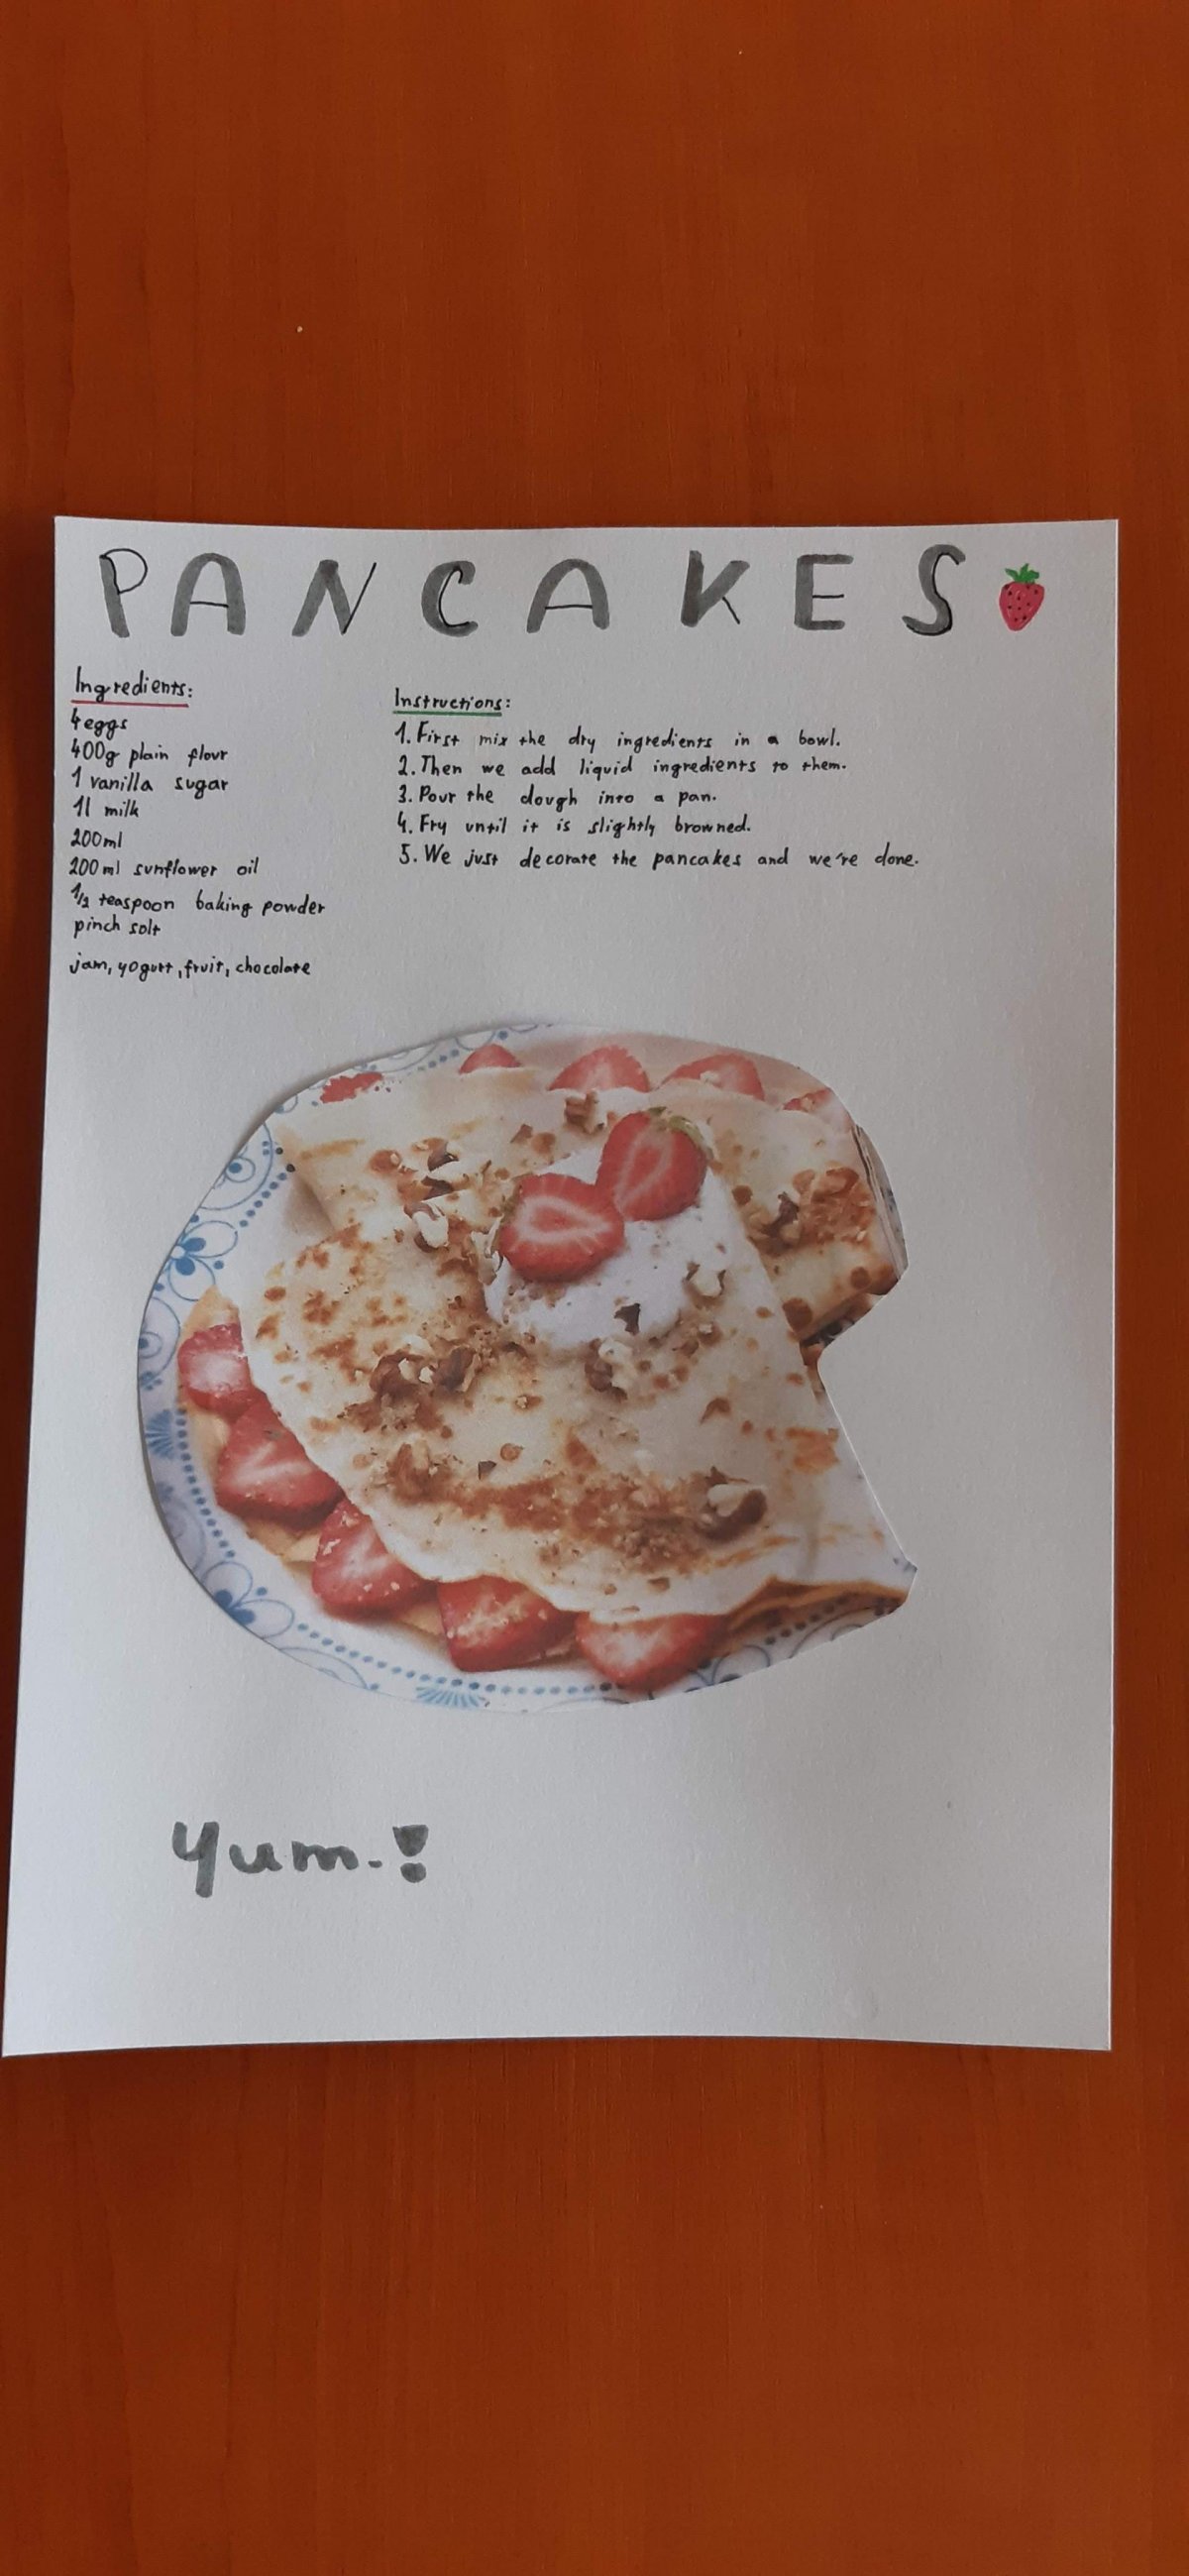 PANCAKES
Ingredients:
4 eggs
400g plain flour
1 vanilla sugar
1l milk
200ml
200ml sunflower oil
1/2 teaspoon baking powder
pinch solt
jam, yogurt, fruit, chocolate
Instructions:
1. First mix the dry ingredients in a bowl.
2. Then we add liquid ingredients to them.
3. Pour the dough into a pan.
4. Fry until it is slightly browned.
5. We just decorate the pancakes and we're done.
Yum.!